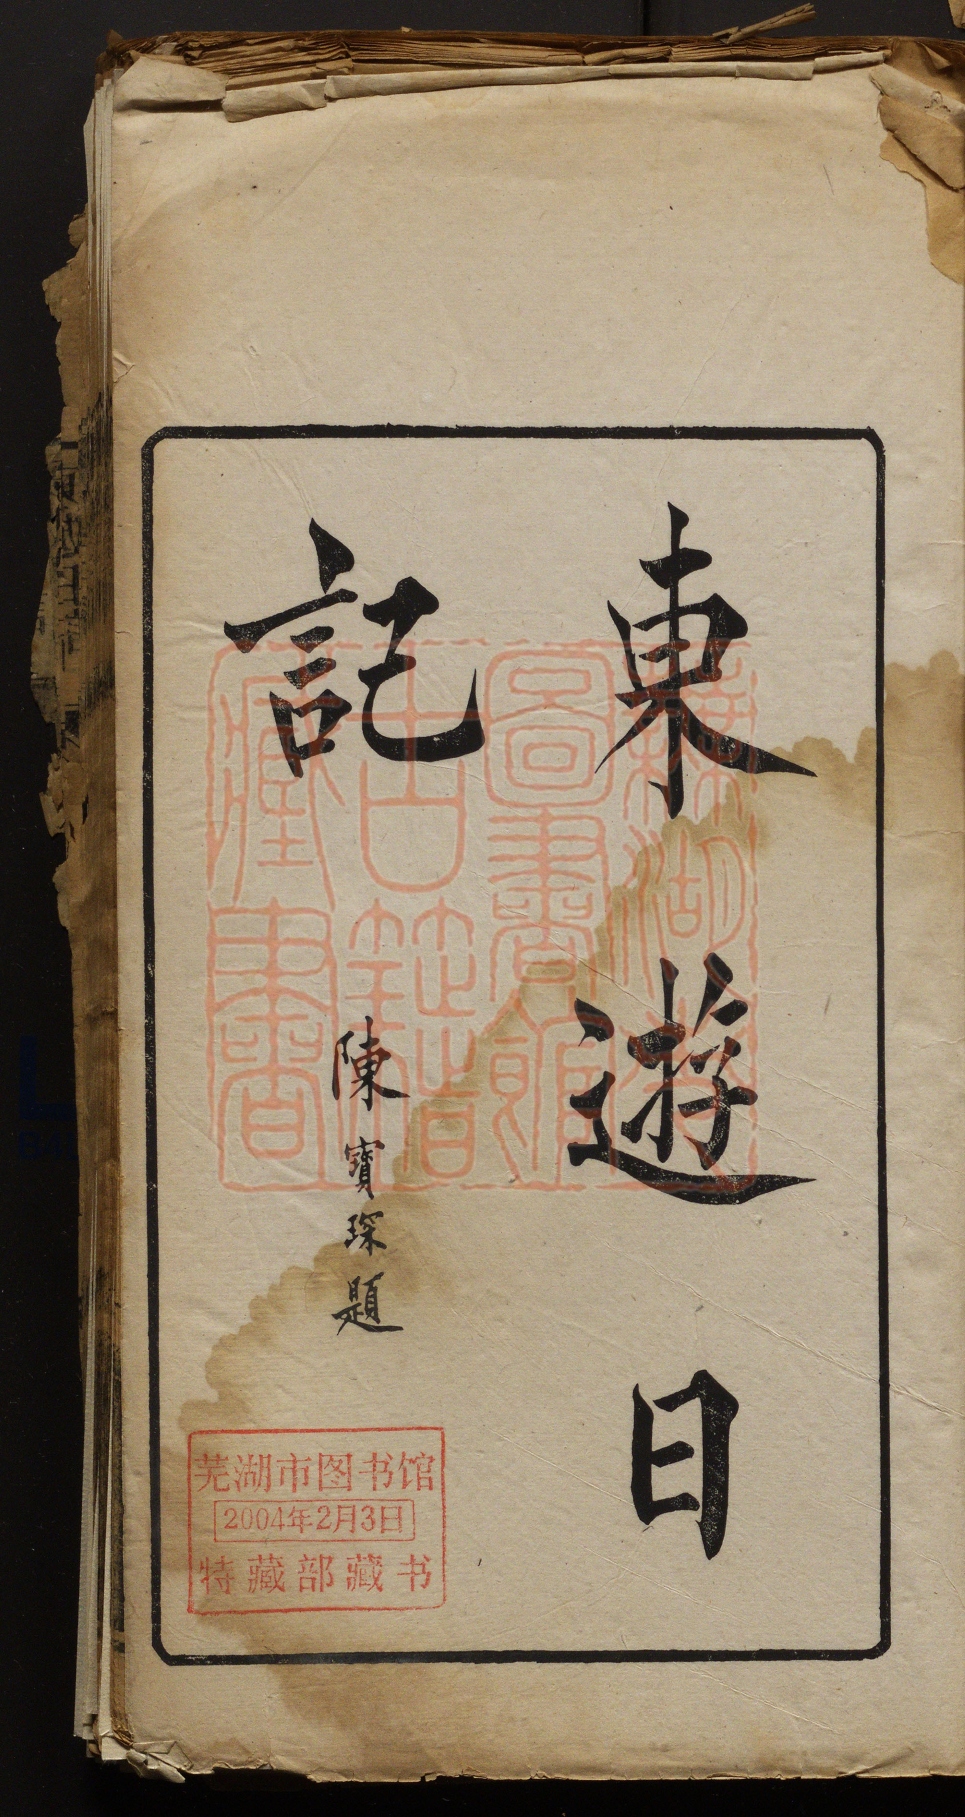 東遊日
記
陳寶琛題
蕪湖市
圖書館
古籍
藏書
芜湖市图书馆
2004年2月3日
特藏部藏书